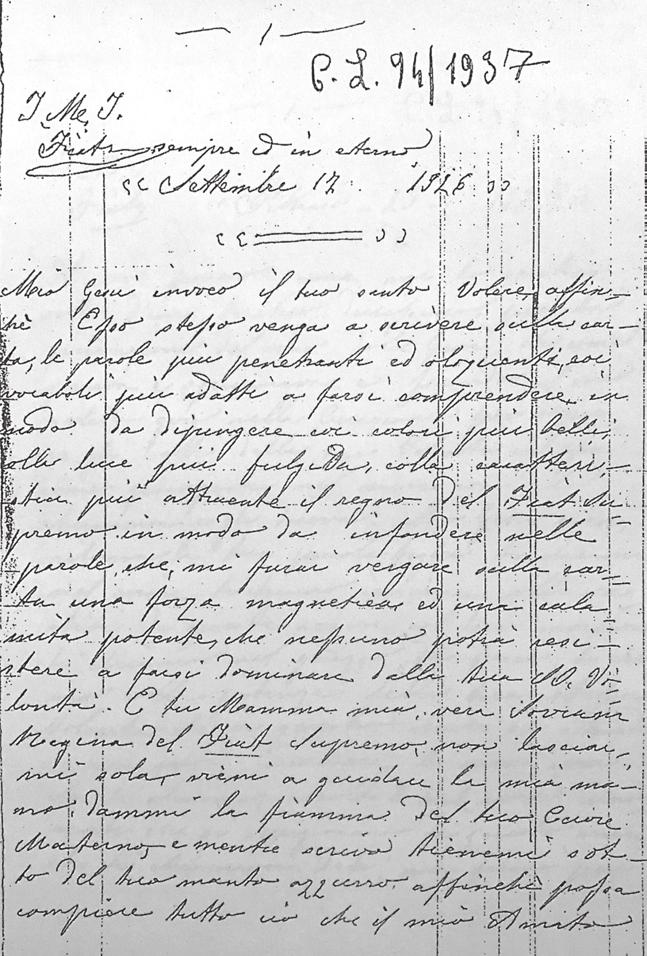 — 1 —
P. L. 94/1937
J. M. J.
Fiat sempre ed in eterno
«« Settembre 12 1926 »»
Mio Gesù invoco il tuo santo Volere, affin-
chè Esso stesso venga a scrivere sulla car-
ta, le parole più penetranti ed eloquenti, coi
vocaboli più adatti a farsi comprendere, in
modo da dipingere coi colori più belli,
colla luce più fulgida, colla caratteri-
stica più attraente il regno del Fiat Su-
premo, in modo da infondere nelle
parole, che, mi farai vergare sulla car-
ta una forza magnetica, ed una cala
mita potente, che nessuno potrà resi-
stere a farsi dominare dalla tua SS. Vo-
lontà. E tu Mamma mia, vera Sovrana
Regina del Fiat Supremo, non lasciar-
mi sola, vieni a guidare la mia ma-
no, dammi la fiamma del tuo Cuore
Materno, e mentre scrivo tienemi sot-
to del tuo manto azzurro, affinchè possa
compiere tutto ciò che il mio Amato